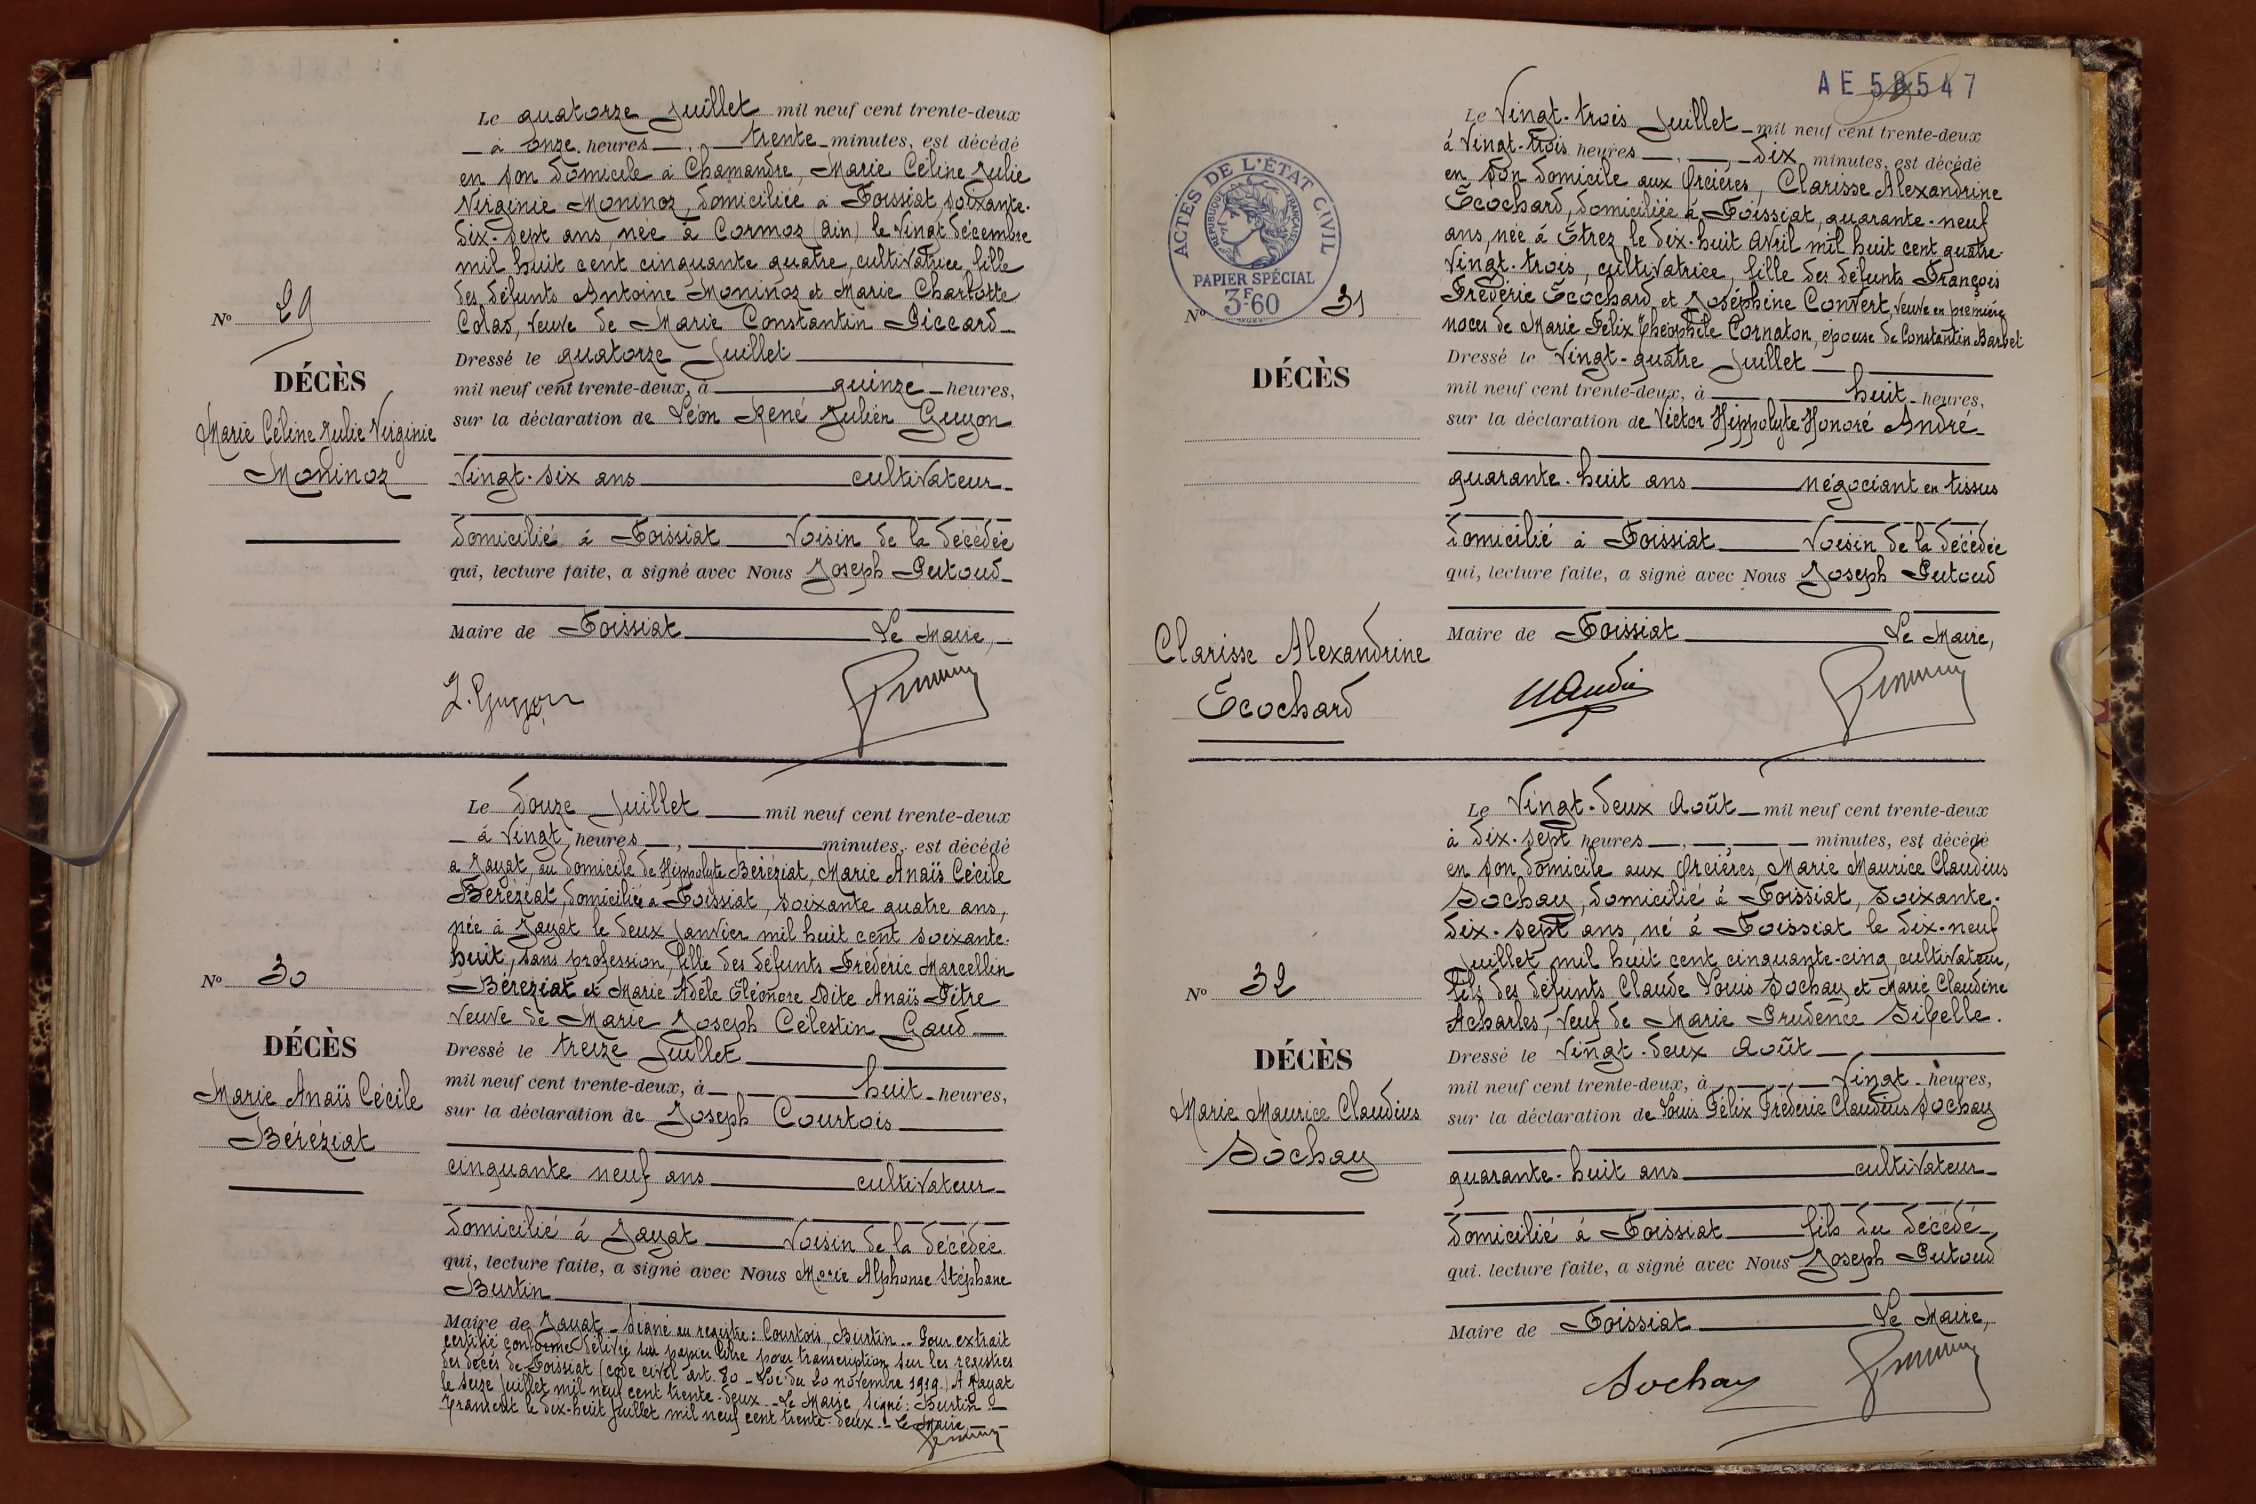 Le quatorze Juillet mil neuf cent trente-deux
à onze heures, trente minutes, est décédé
en son domicile à Chamandre, Marie Céline Julie
Virginie Moninoz, domiciliée à Foissiat, soixante-
dix-sept ans, née à Cormoz (Ain) le vingt décembre
mil huit cent cinquante quatre, cultivatrice, fille
des défunts Antoine Moninoz et Marie Charlotte
Colas, veuve de Marie Constantin Piccard
Nº 29
DÉCÈS
Marie Céline Julie Virginie
Moninoz
Dressé le quatorze Juillet
mil neuf cent trente-deux, à quinze heures,
sur la déclaration de Léon René Julien Guyon
vingt-six ans cultivateur
domicilié à Foissiat voisin de la décédée
qui, lecture faite, a signé avec Nous Joseph Putoud
Maire de Foissiat Le Maire,
L. Guyon
Le douze Juillet mil neuf cent trente-deux
à vingt heures, minutes, est décédé
à Jayat, au domicile de Hippolyte Béréziat, Marie Anaïs Cécile
Béréziat, domiciliée à Foissiat, soixante quatre ans,
née à Jayat le deux Janvier mil huit cent soixante-
huit, sans profession, fille des défunts Frédéric Marcellin
Béréziat et Marie Adèle Eléonore Dite Anaïs Pitre
veuve de Marie Joseph Célestin Gaud
Nº 30
DÉCÈS
Marie Anaïs Cécile
Béréziat
Dressé le treize Juillet
mil neuf cent trente-deux, à huit heures,
sur la déclaration de Joseph Courtois
cinquante neuf ans cultivateur
domicilié à Jayat voisin de la décédée
qui, lecture faite, a signé avec Nous Marie Alphonse Stéphane
Burtin
Maire de Jayat - Signé au registre : Courtois, Burtin - Pour extrait
certifié conforme délivré sur papier libre pour transcription sur les registres
des décès de Foissiat (code civil art. 80 - Loi du 20 novembre 1919.) A Jayat
le seize Juillet mil neuf cent trente-deux - Le Maire, signé : Burtin -
Transcrit le dix-huit Juillet mil neuf cent trente-deux - Le Maire,
AE 58547
ACTES DE L'ÉTAT CIVIL
REPUBLIQUE FRANÇAISE
PAPIER SPÉCIAL
3F60
Le vingt-trois Juillet mil neuf cent trente-deux
à vingt-trois heures, dix minutes, est décédé
en son domicile aux Orcières, Clarisse Alexandrine
Ecochard, domiciliée à Foissiat, quarante-neuf
ans, née à Etrez le dix-huit Avril mil huit cent quatre-
vingt-trois, cultivatrice, fille des défunts François
Frédéric Ecochard et Joséphine Convert, veuve en première
noces de Marie Félix Théophile Cornaton, épouse de Constantin Barbet
Nº 31
DÉCÈS
Clarisse Alexandrine
Ecochard
Dressé le vingt-quatre Juillet
mil neuf cent trente-deux, à huit heures,
sur la déclaration de Victor Hippolyte Honoré André
quarante-huit ans négociant en tissus
domicilié à Foissiat voisin de la décédée
qui, lecture faite, a signé avec Nous Joseph Putoud
Maire de Foissiat Le Maire,
Le vingt-deux Août mil neuf cent trente-deux
à dix-sept heures, minutes, est décédé
en son domicile aux Orcières, Marie Maurice Claudius
Sochay, domicilié à Foissiat, soixante-
dix-sept ans, né à Foissiat le dix-neuf
Juillet mil huit cent cinquante-cinq, cultivateur,
fils des défunts Claude Louis Sochay et Marie Claudine
Acharles, veuf de Marie Prudence Sibelle.
Nº 32
DÉCÈS
Marie Maurice Claudius
Sochay
Dressé le vingt-deux Août
mil neuf cent trente-deux, à vingt heures,
sur la déclaration de Louis Félix Frédéric Claudius Sochay
quarante-huit ans cultivateur
domicilié à Foissiat fils du décédé
qui, lecture faite, a signé avec Nous Joseph Putoud
Maire de Foissiat Le Maire,
Sochay